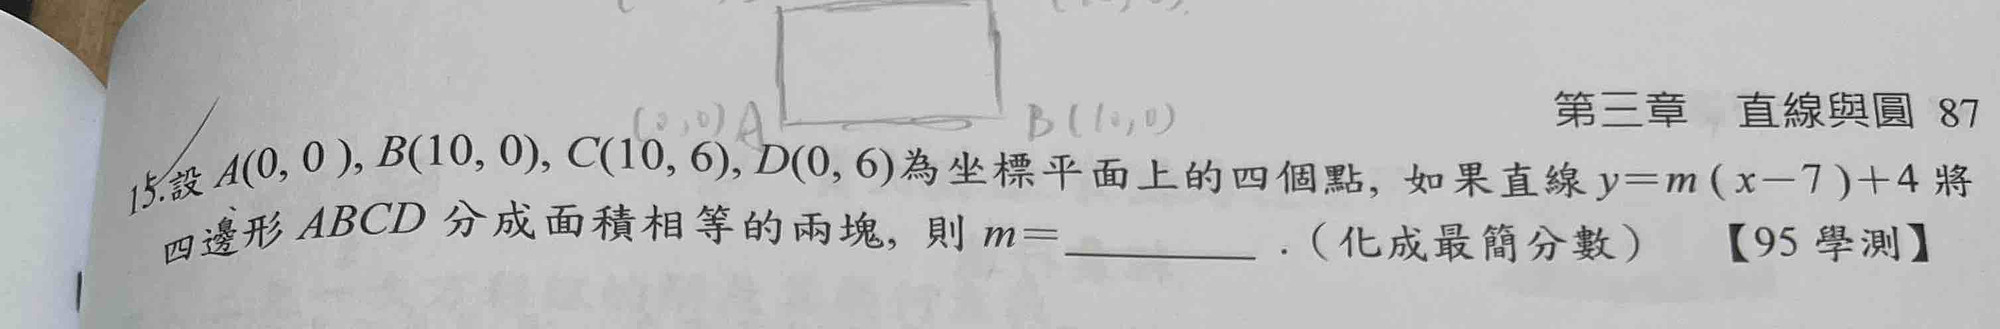 (0,0) A
B(10,0)
第三章 直線與圓 87
15.設 A(0, 0 ), B(10, 0), C(10, 6), D(0, 6)為坐標平面上的四個點, 如果直線 y=m ( x-7 )+4 將
四邊形 ABCD 分成面積相等的兩塊, 則 m=________ .(化成最簡分數) 【95 學測】